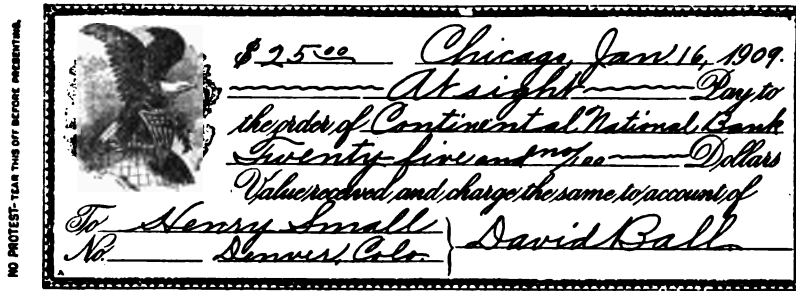 NO PROTEST-TEAR THIS OFF BEFORE PRESENTING.
$ 25 00 Chicago, Jan. 16, 1909.
At sight Pay to
the order of Continental National Bank
Twenty five and no/100 Dollars
Value received and charge the same to account of
To Henry Small
No. Denver, Colo. David Ball
A